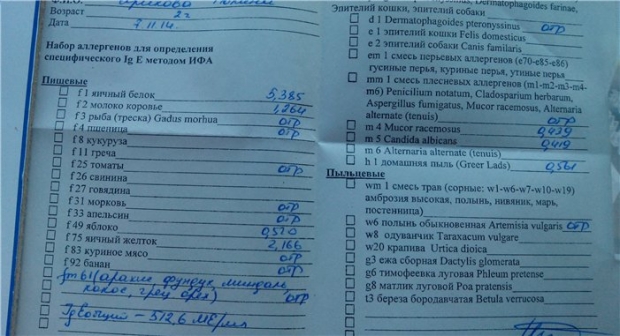 Возраст 2г
Дата 7.11.14.
Набор аллергенов для определения
специфического Ig E методом ИФА
Пищевые
f 1 яичный белок 5,385
f 2 молоко коровье 1,264
f 3 рыба (треска) Gadus morhua отр
f 4 пшеница отр
f 8 кукуруза
f 11 греча
f 25 томаты отр
f 26 свинина
f 27 говядина
f 31 морковь отр
f 33 апельсин отр
f 49 яблоко 0,520
f 75 яичный желток 2,166
f 83 куриное мясо отр
f 92 банан отр
fm 61 (арахис фундук миндаль
кокос, грец орех) отр
Ig E общий - 512,6 МЕ/мл
Эпителий кошки, эпителий собаки
d 1 Dermatophagoides pteronyssinus отр
e 1 эпителий кошки Felis domesticus
e 2 эпителий собаки Canis familaris
em 1 смесь перьевых аллергенов (e70-e85-e86)
гусиные перья, куриные перья, утиные перья
mm 1 смесь плесневых аллергенов (m1-m2-m3-m4-
m6) Penicilium notatum, Cladosparium herbarum,
Aspergillus fumigatus, Mucor racemosus, Alternaria
alternate (tenuis) отр
m 4 Mucor racemosus 0,439
m 5 Candida albicans 0,419
m 6 Alternaria alternate (tenuis)
h 1 домашняя пыль (Greer Lads) 0,561
Пыльцевые
wm 1 смесь трав (сорные: w1-w6-w7-w10-w19)
амброзия высокая, полынь, нивяник, марь,
постенница)
w6 полынь обыкновенная Artemisia vulgaris отр
w8 одуванчик Taraxacum vulgare
w20 крапива Urtica dioica
g3 ежа сборная Dactylis glomerata
g6 тимофеевка луговая Phleum pretense
g8 матлик луговой Poa pratensis
t3 береза бородавчатая Betula verrucosa